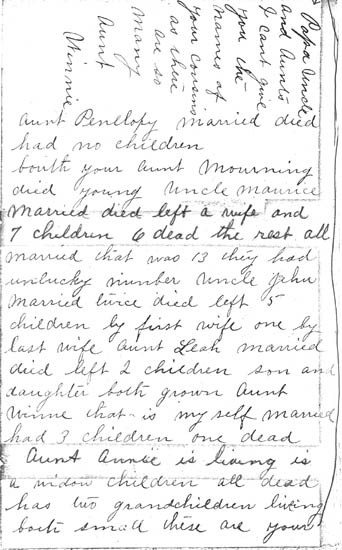 Papa Uncle
and Aunts
I cant give
you the
names of
your cousins
as there
are so
many
Aunt
Winnie
Aunt Penelopy married died
had no children
both your Aunt Mourning
died young Uncle Maurice
Married died left a wife and
7 children 6 dead the rest all
married that was 13 they had
unlucky number Uncle John
Married twice died left 5
children by first wife one by
last wife Aunt Leah married
died left 2 children son and
daughter both grown Aunt
Winne that is my self married
had 3 children one dead
Aunt Annie is living is
a widow children all dead
has two grandchildren living
both small these are your